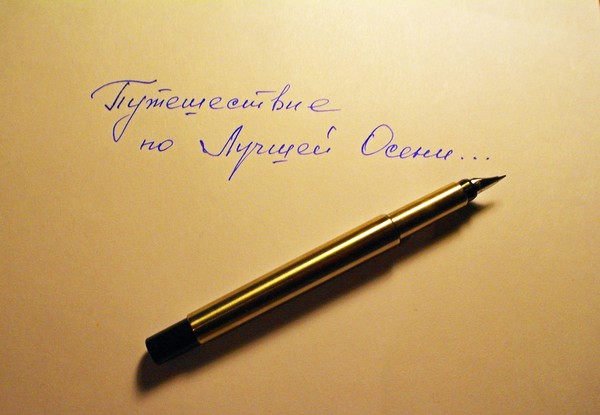 Путешествие
по Лучшей Осени...